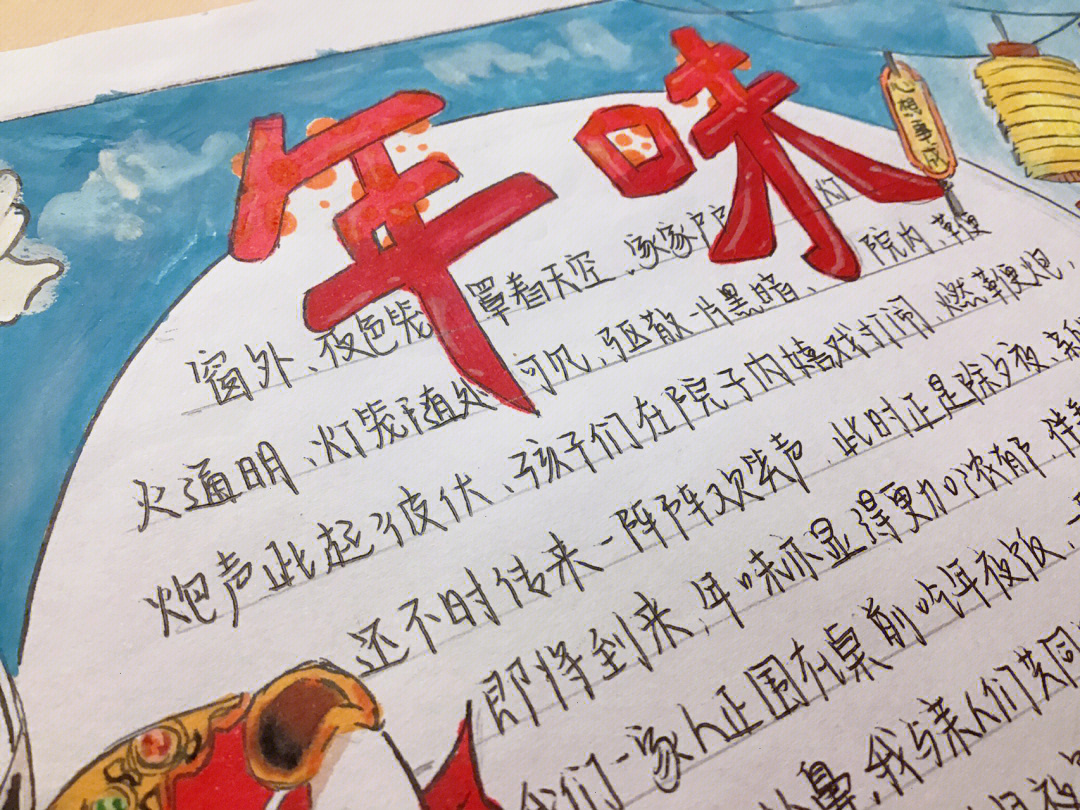 年味
心想事成
窗外、夜色笼罩着天空、家家户户灯
火通明、灯笼随处可见、驱散一片黑暗、院内、鞭
炮声此起彼伏、孩子们在院子内嬉戏打闹、燃鞭炮、
还不时传来一阵阵欢笑声、此时正是除夕夜、新
即将到来，年味亦显得更加浓郁、伴
我们一家人正围在桌前吃年夜饭、
鼻，我与亲人们共同
夜